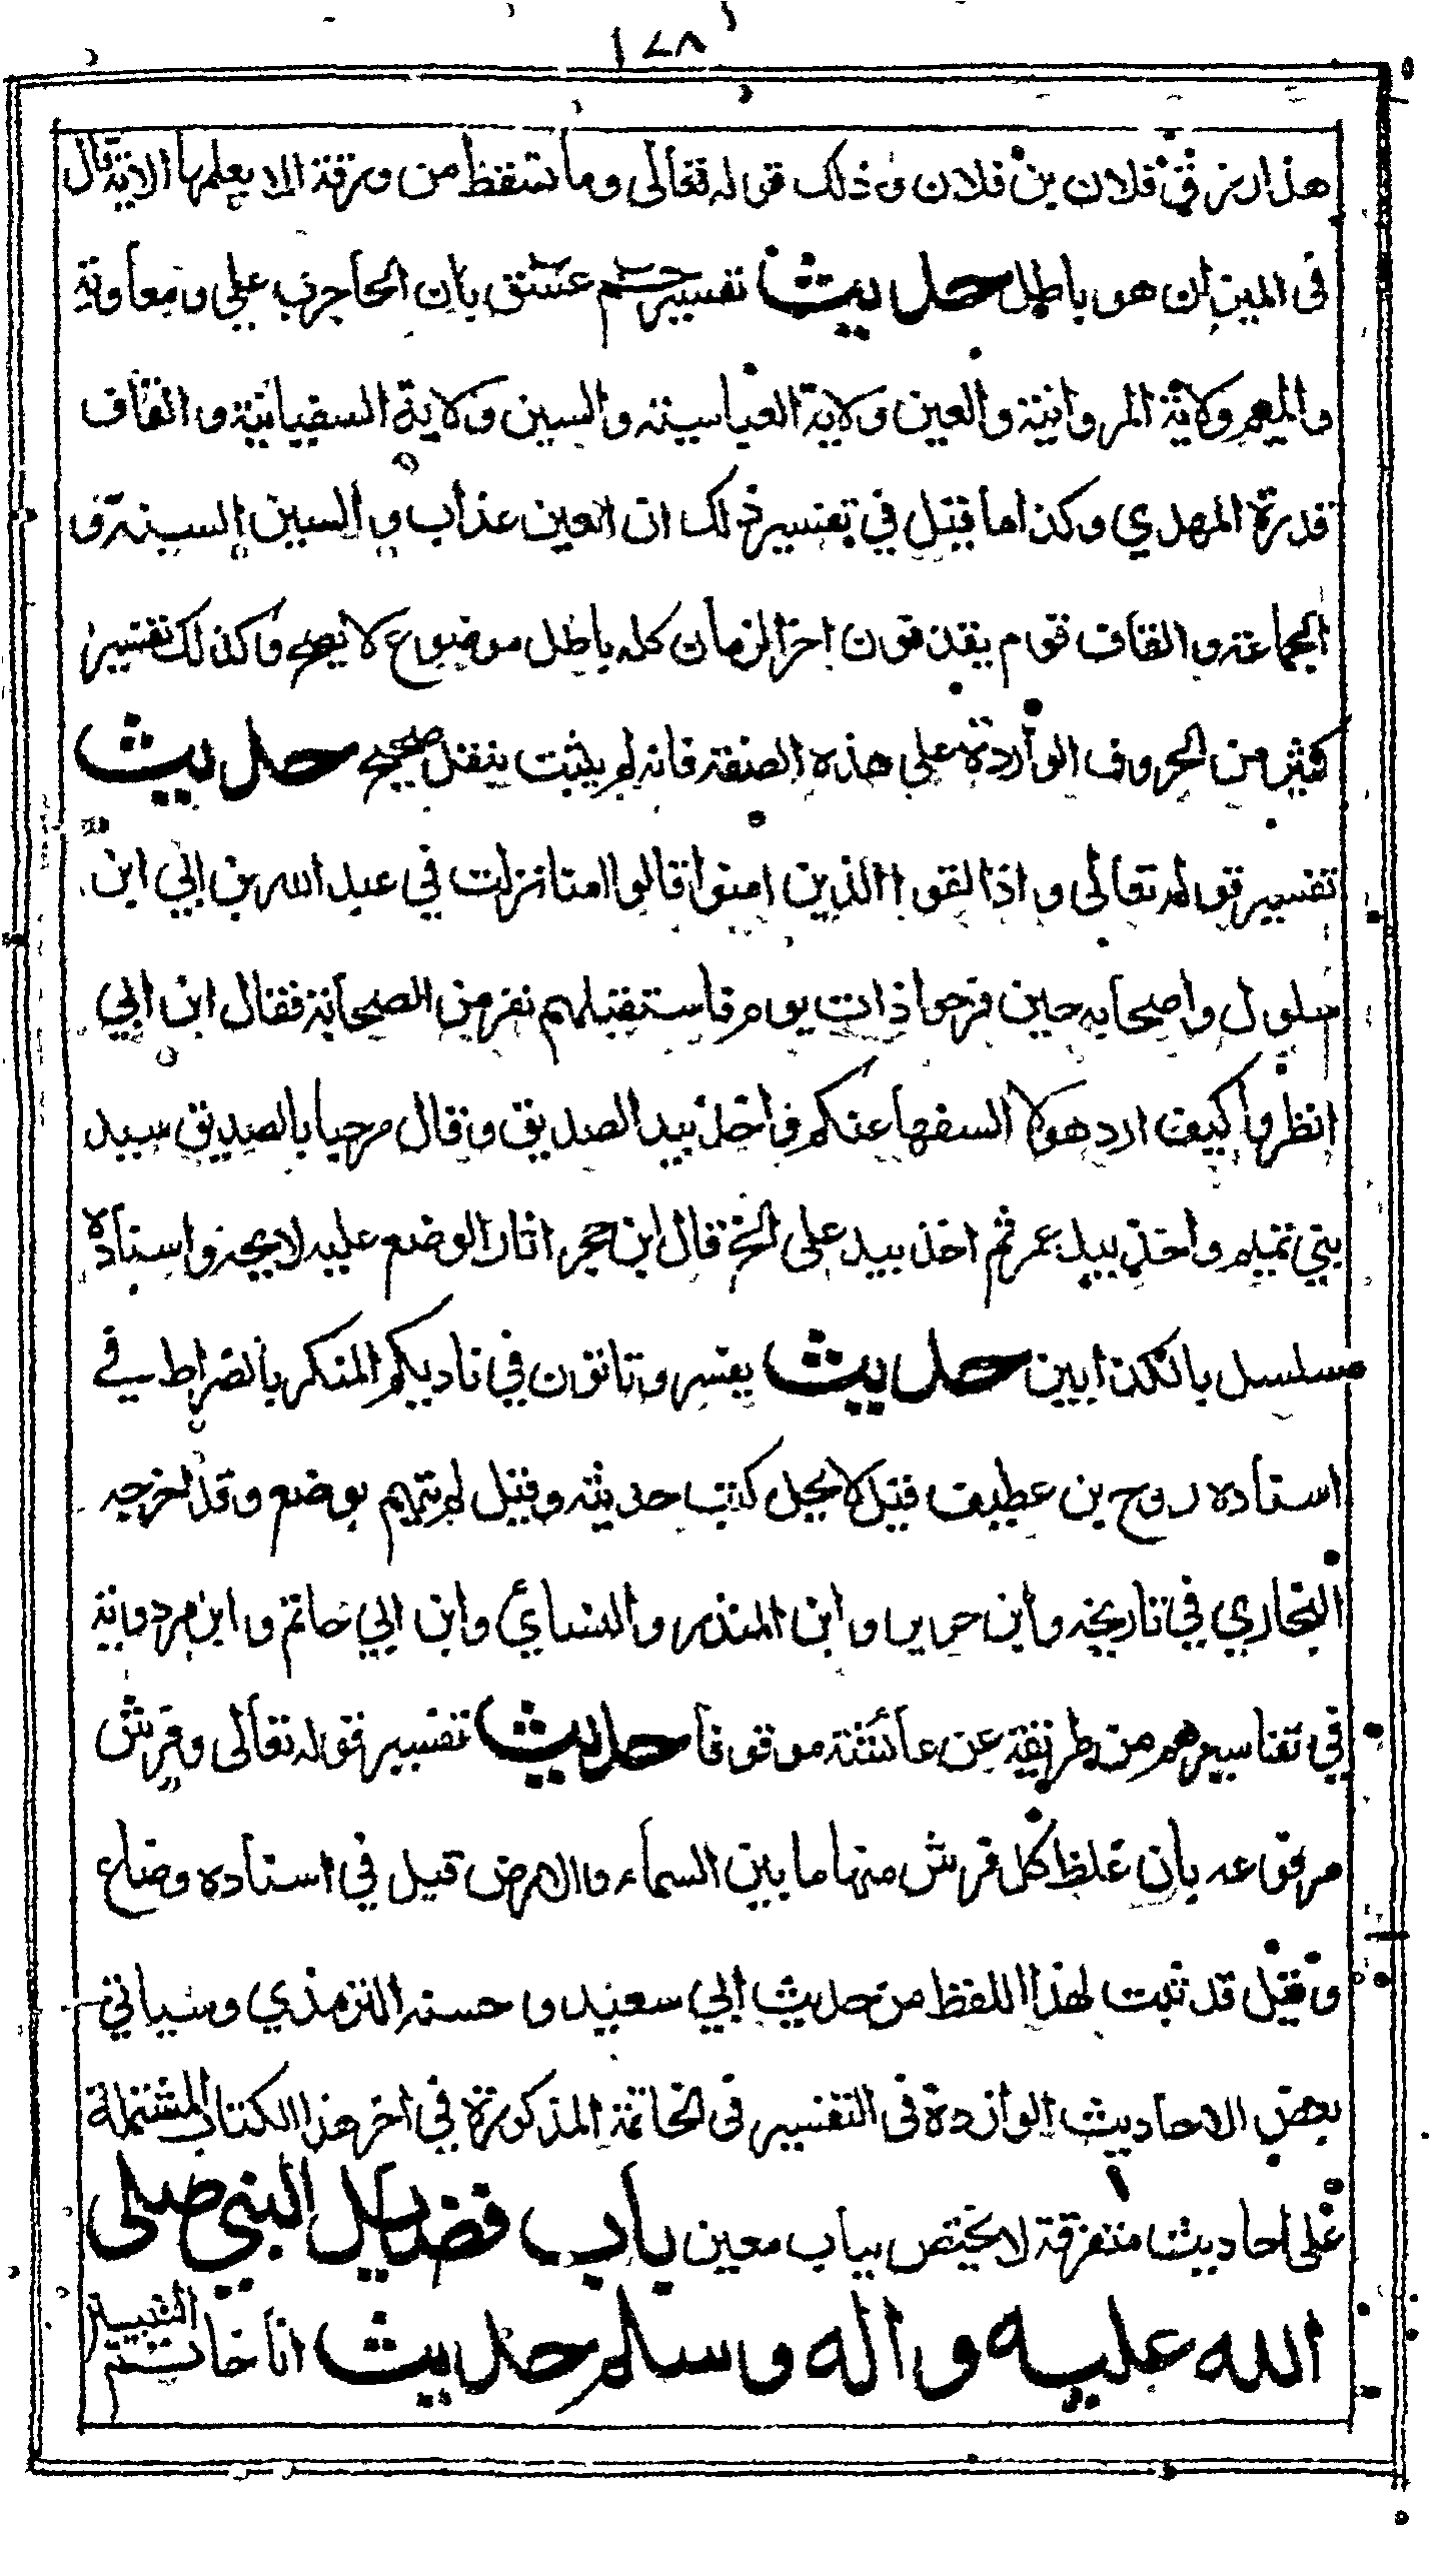 ١٧٨
هذا رزق فلان بن فلان وذلك قوله تعالى وما تسقط من ورقة الا يعلمها الاية قال
فى الميزان هو باطل حديث تفسير حم عسق بان الحا حرب على ومعاوية
والميم ولاية المروانية والعين ولاية العباسية والسين ولاية السفيانية والقاف
قدرة المهدي وكذا ما قيل في تفسير ذلك ان العين عذاب والسين السنة و
الجماعة والقاف قوم يقذفون اخر الزمان كله باطل موضوع لا يصح وكذلك تفسير
كثير من الحروف الواردة على هذه الصفة فانه لم يثبت بنقل صحيح حديث
تفسير قوله تعالى واذا لقوا الذين امنوا قالوا امنا نزلت في عبد الله بن ابي ابن
سلول واصحابه حين خرجوا ذات يوم فاستقبلهم نفر من الصحابة فقال ابن ابي
انظروا كيف ارد هولا السفها عنكم فاخذ بيد الصديق وقال مرحبا بالصديق سيد
بني تميم واخذ بيد عمر ثم اخذ بيد على الخ قال ابن حجر اثار الوضع عليه لايحة واسناده
مسلسل بالكذابين حديث يفسر وتاتون في ناديكم المنكر بالضراط في
اسناده روح بن عطيف قيل لا يحل كتب حديثه وقيل لم يتهم بوضع وقد اخرجه
البخاري في تاريخه وابن جرير وابن المنذر والنسائي وابن ابي حاتم وابن مردوية
في تفاسيرهم من طريقه عن عائشة موقوفا حديث تفسير قوله تعالى وفرش
مرفوعه بان غلظ كل فرش منها ما بين السماء والارض قيل في اسناده وضاع
وقيل قد ثبت لهذا اللفظ من حديث ابي سعيد و حسنه الترمذي وسياتي
بعض الاحاديث الواردة فى التفسير فى الخاتمة المذكورة في اخر هذا الكتاب المشتملة
على احاديث متفرقة لا يختص بباب معين باب فضايل النبي صلى
الله عليه واله وسلم حديث انا خاتم النبيين